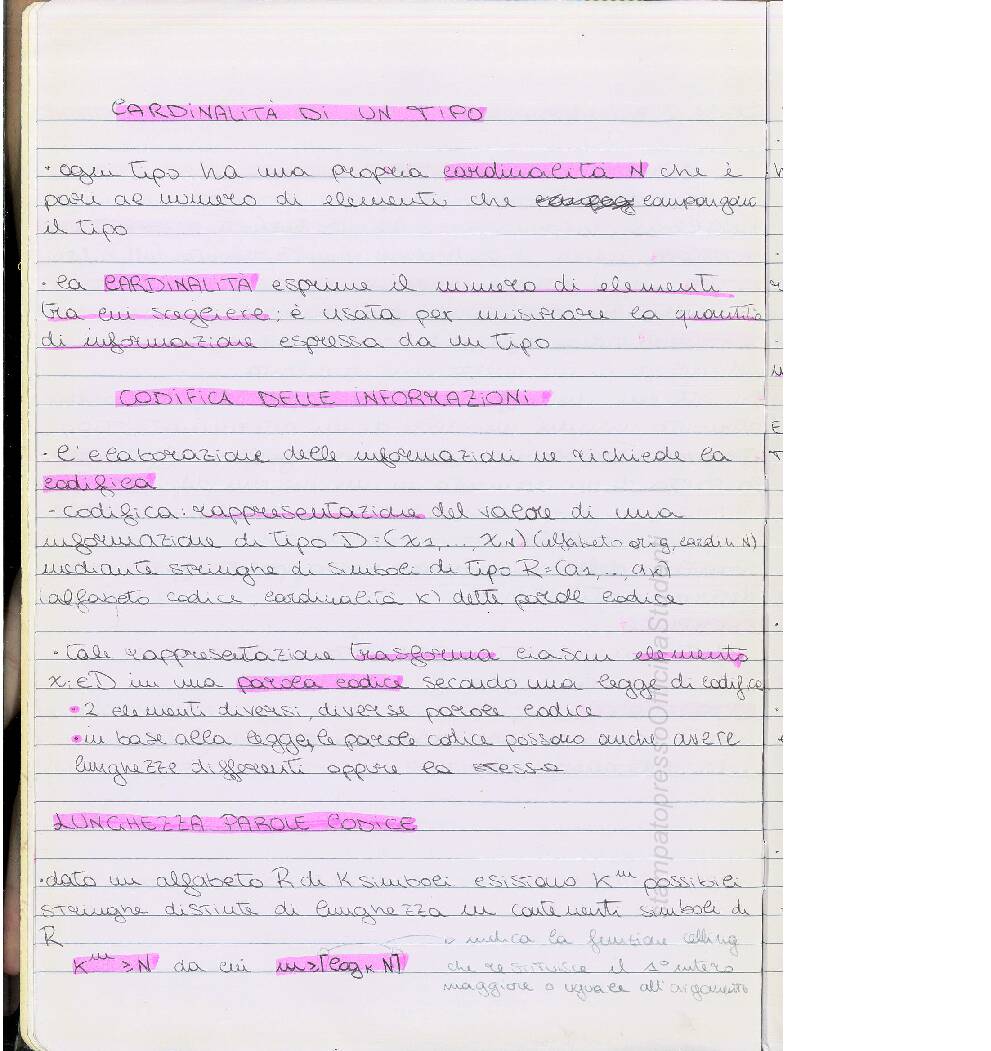 CARDINALITÀ DI UN TIPO
• ogni tipo ha una propria cardinalità N che è
pari al numero di elementi che compongono
il tipo
• la CARDINALITÀ esprime il numero di elementi
tra cui scegliere; è usata per misurare la quantità
di informazione espressa da un tipo
CODIFICA DELLE INFORMAZIONI
• l'elaborazione delle informazioni ne richiede la
codifica
- codifica: rappresentazione del valore di una
informazione di tipo D=(x1,..., xN) (alfabeto orig, cardin N)
mediante stringhe di simboli di tipo R=(a1,..., ak)
(alfabeto codice, cardinalità K) dette parole codice
• tale rappresentazione trasforma ciascun elemento
xi∈D in una parola codice secondo una legge di codifica
• 2 elementi diversi, diverse parole codice
• in base alla legge, le parole codice possono anche avere
lunghezze differenti oppure la stessa
LUNGHEZZA PAROLE CODICE
• dato un alfabeto R di K simboli esistono K^m possibili
stringhe distinte di lunghezza m contenenti simboli di
R
K^m ≥ N da cui m ≥ ⌈log_K N⌉
indica la funzione ceiling
che restituisce il 1° intero
maggiore o uguale all'argomento
tampatopressoOfficinaStudenti